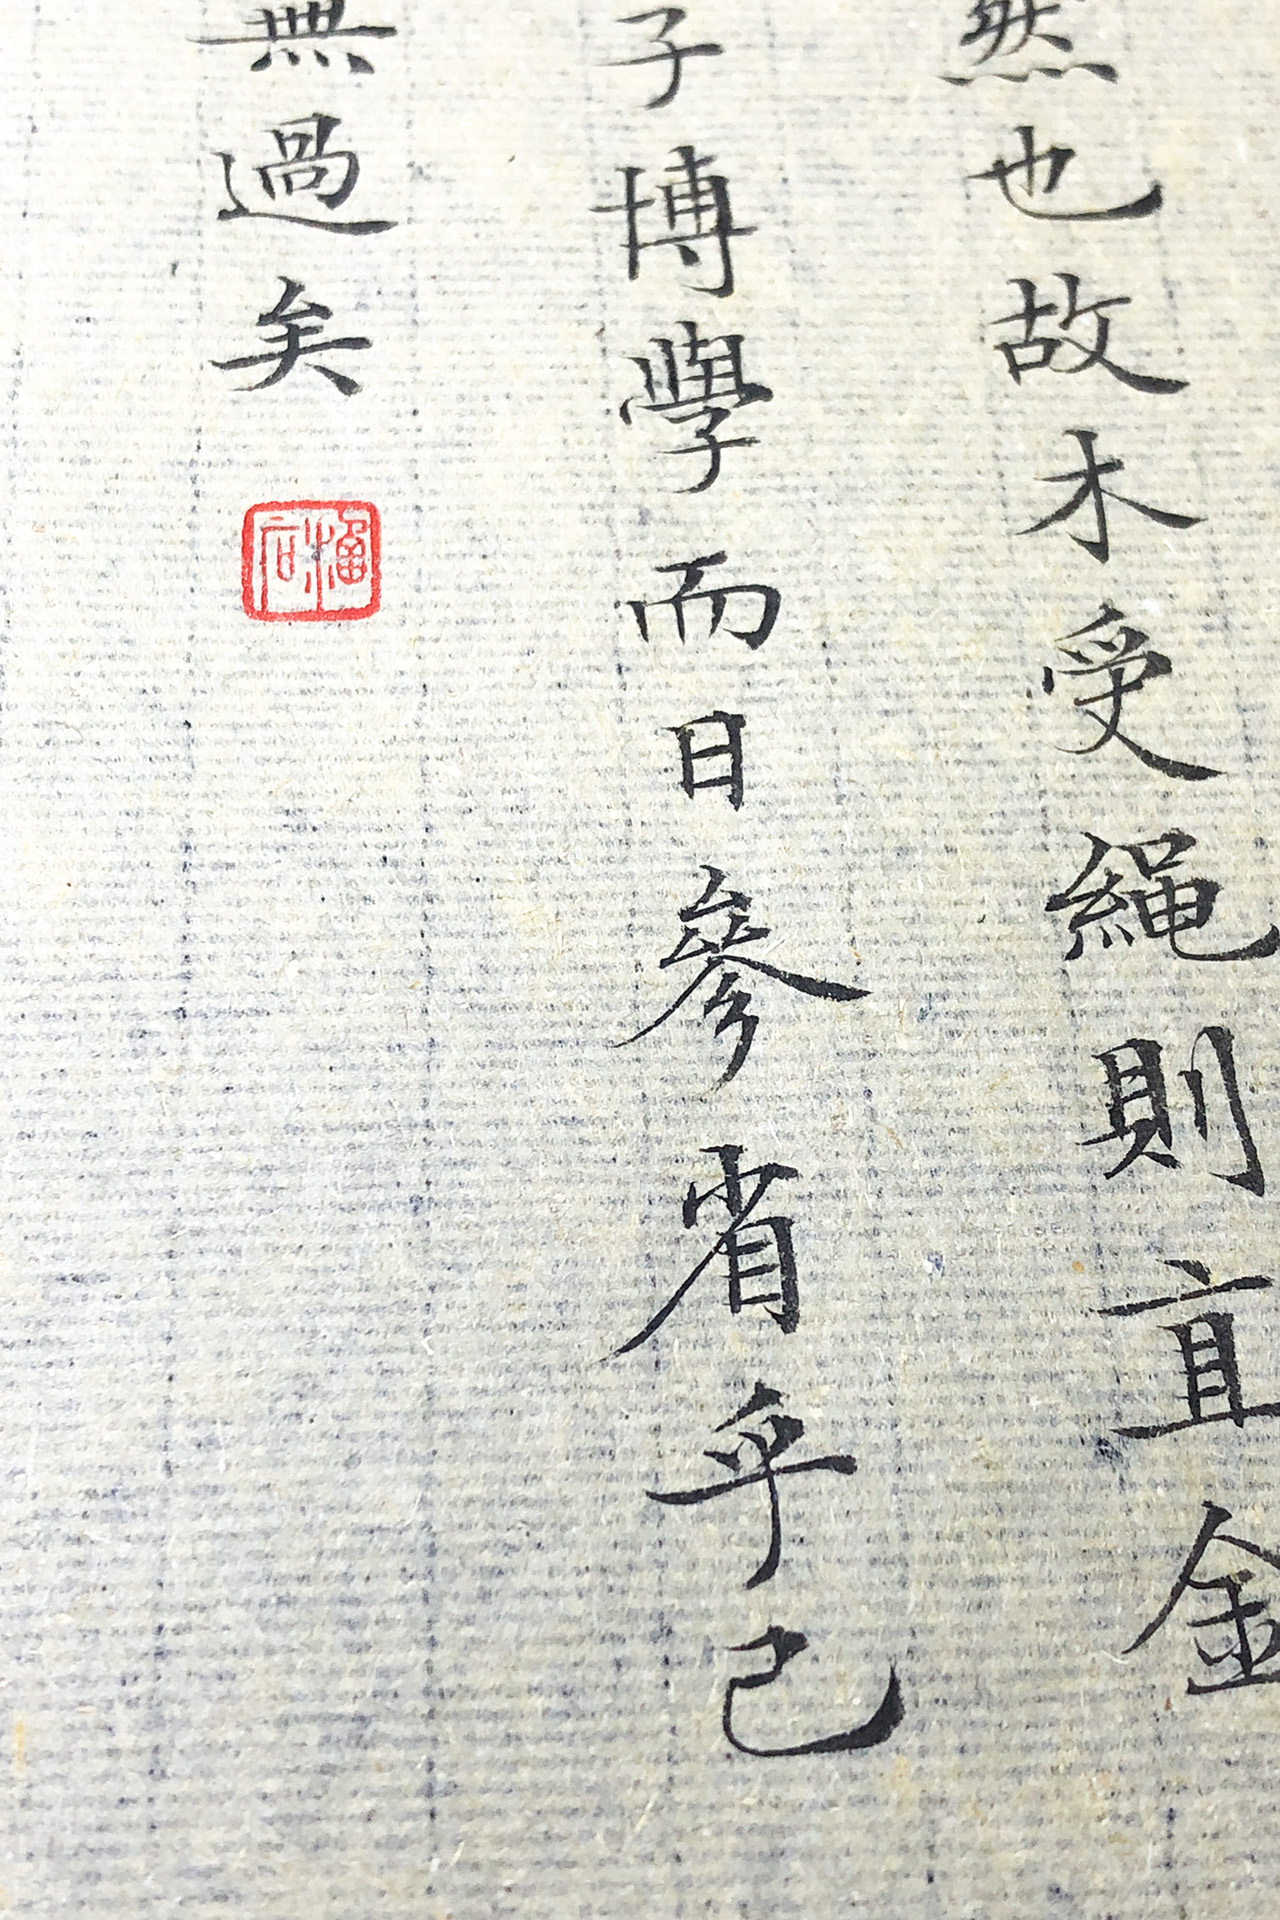 然也故木受繩則直金
子博學而日參省乎己
無過矣